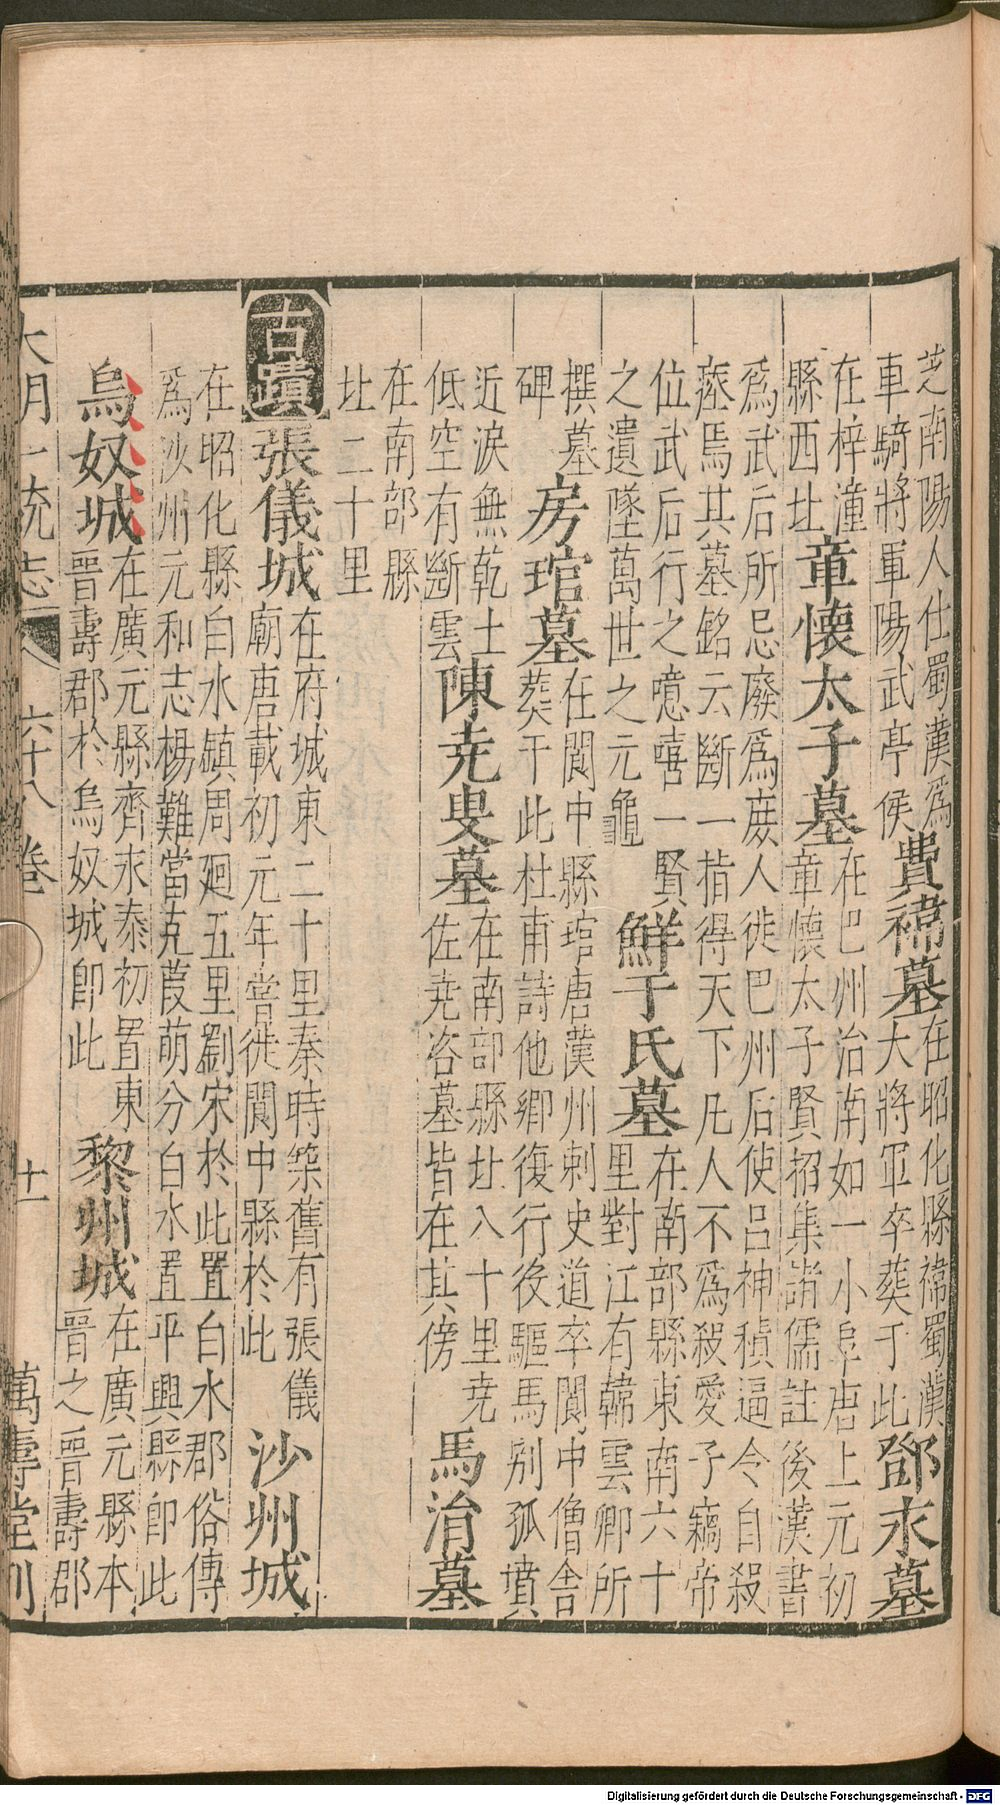 芝南陽人仕蜀漢爲
車騎將軍陽武亭侯
費禕墓
在昭化縣禕蜀漢
大將軍卒葬于此
鄧永墓
在梓潼
縣西北
章懷太子墓
在巴州治南如一小阜唐上元初
章懷太子賢招集諸儒註後漢書
爲武后所忌廢爲庶人徙巴州后使呂神積逼令自殺
瘞焉其墓銘云斷一指得天下凡人不爲殺愛子竊帝
位武后行之噫嘻一賢
之遺墜萬世之元龜
鮮于氏墓
在南部縣東南六十
里對江有韓雲卿所
撰墓
碑
房琯墓
在閬中縣琯唐漢州刺史道卒閬中僧舍
葬于此杜甫詩他鄉復行役驅馬別孤墳
近淚無乾土
低空有斷雲
陳尭叟墓
在南部縣北入十里尭
佐尭咨墓皆在其傍
馬涓墓
在南部縣
北二十里
古蹟
張儀城
在府城東二十里秦時築舊有張儀
廟唐載初元年嘗徙閬中縣於此
沙州城
在昭化縣白水鎮周廻五里劉宋於此置白水郡俗傳
爲沙州元和志楊難當克葭萌分白水置平興縣即此
烏奴城
在廣元縣齊永泰初置東
晉壽郡於烏奴城即此
黎州城
在廣元縣本
晉之晉壽郡
大明一統志 六十八卷 十一 萬壽堂刊
Digitalisierung gefördert durch die Deutsche Forschungsgemeinschaft - DFG